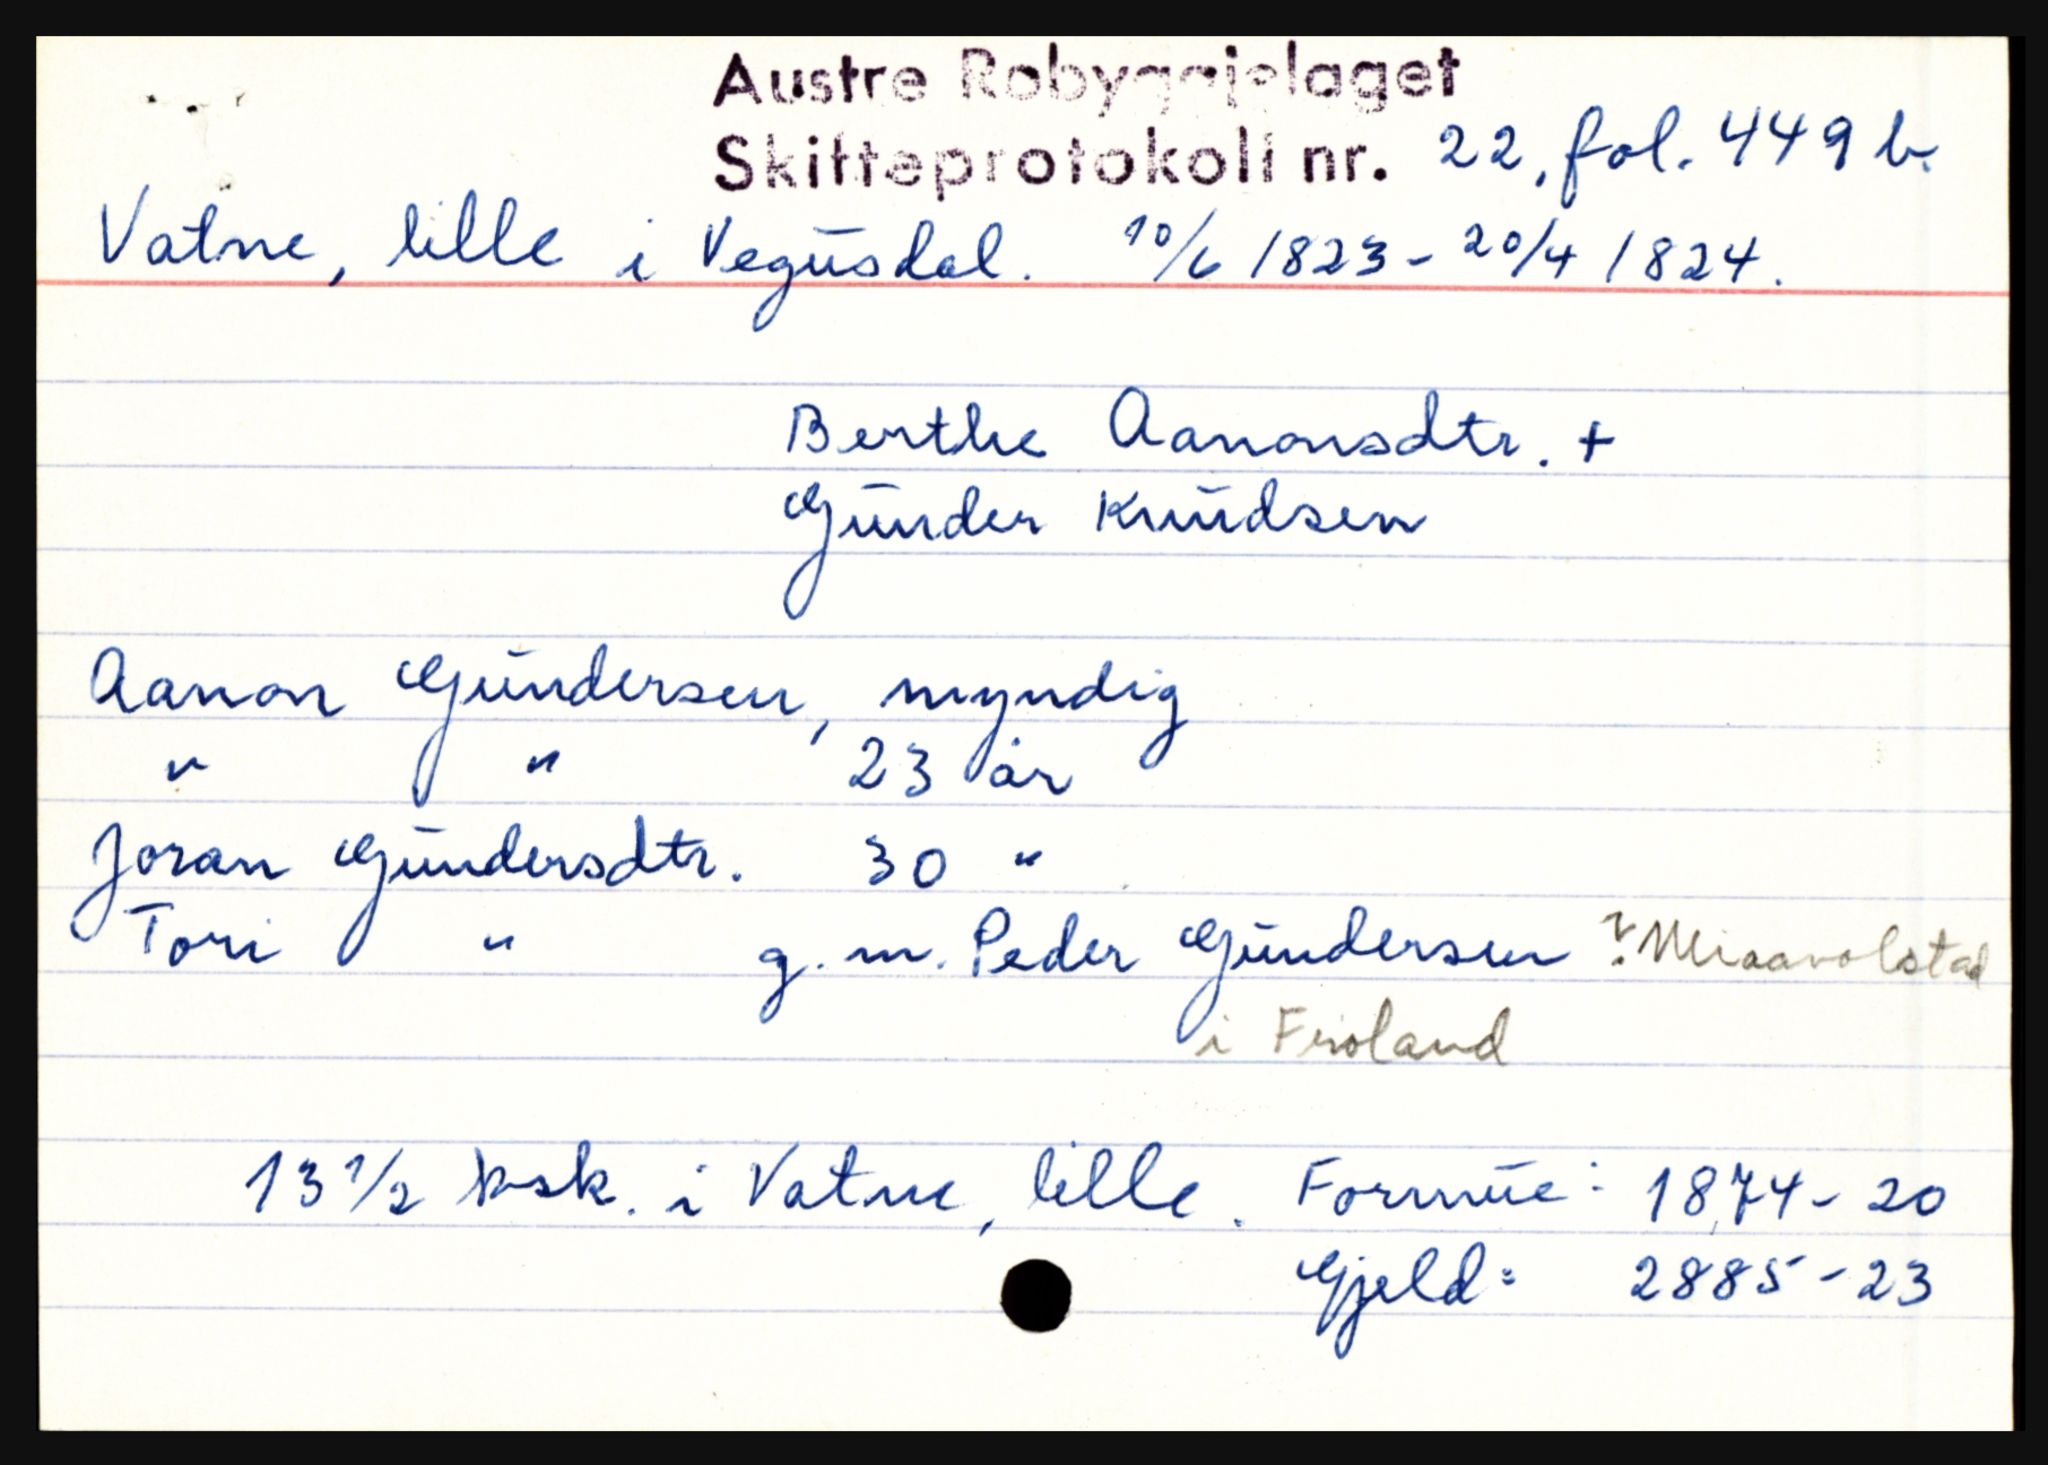 Austre Robyggjelaget
Skifteprotokoll nr. 22, fol. 449 b.
Vatne, lille i Vegusdal. 10/6 1823 - 20/4 1824.
Berthe Aanonsdtr. +
Gunder Knudsen
Aanon Gundersen, myndig
" " 23 år
Joran Gundersdtr. 30 "
Tori " g. m. Peder Gundersen ? Miaavolstad
i Froland
13 1/2 ksk. i Vatne, lille. Formue: 1874 - 20
Gjeld: 2885 - 23